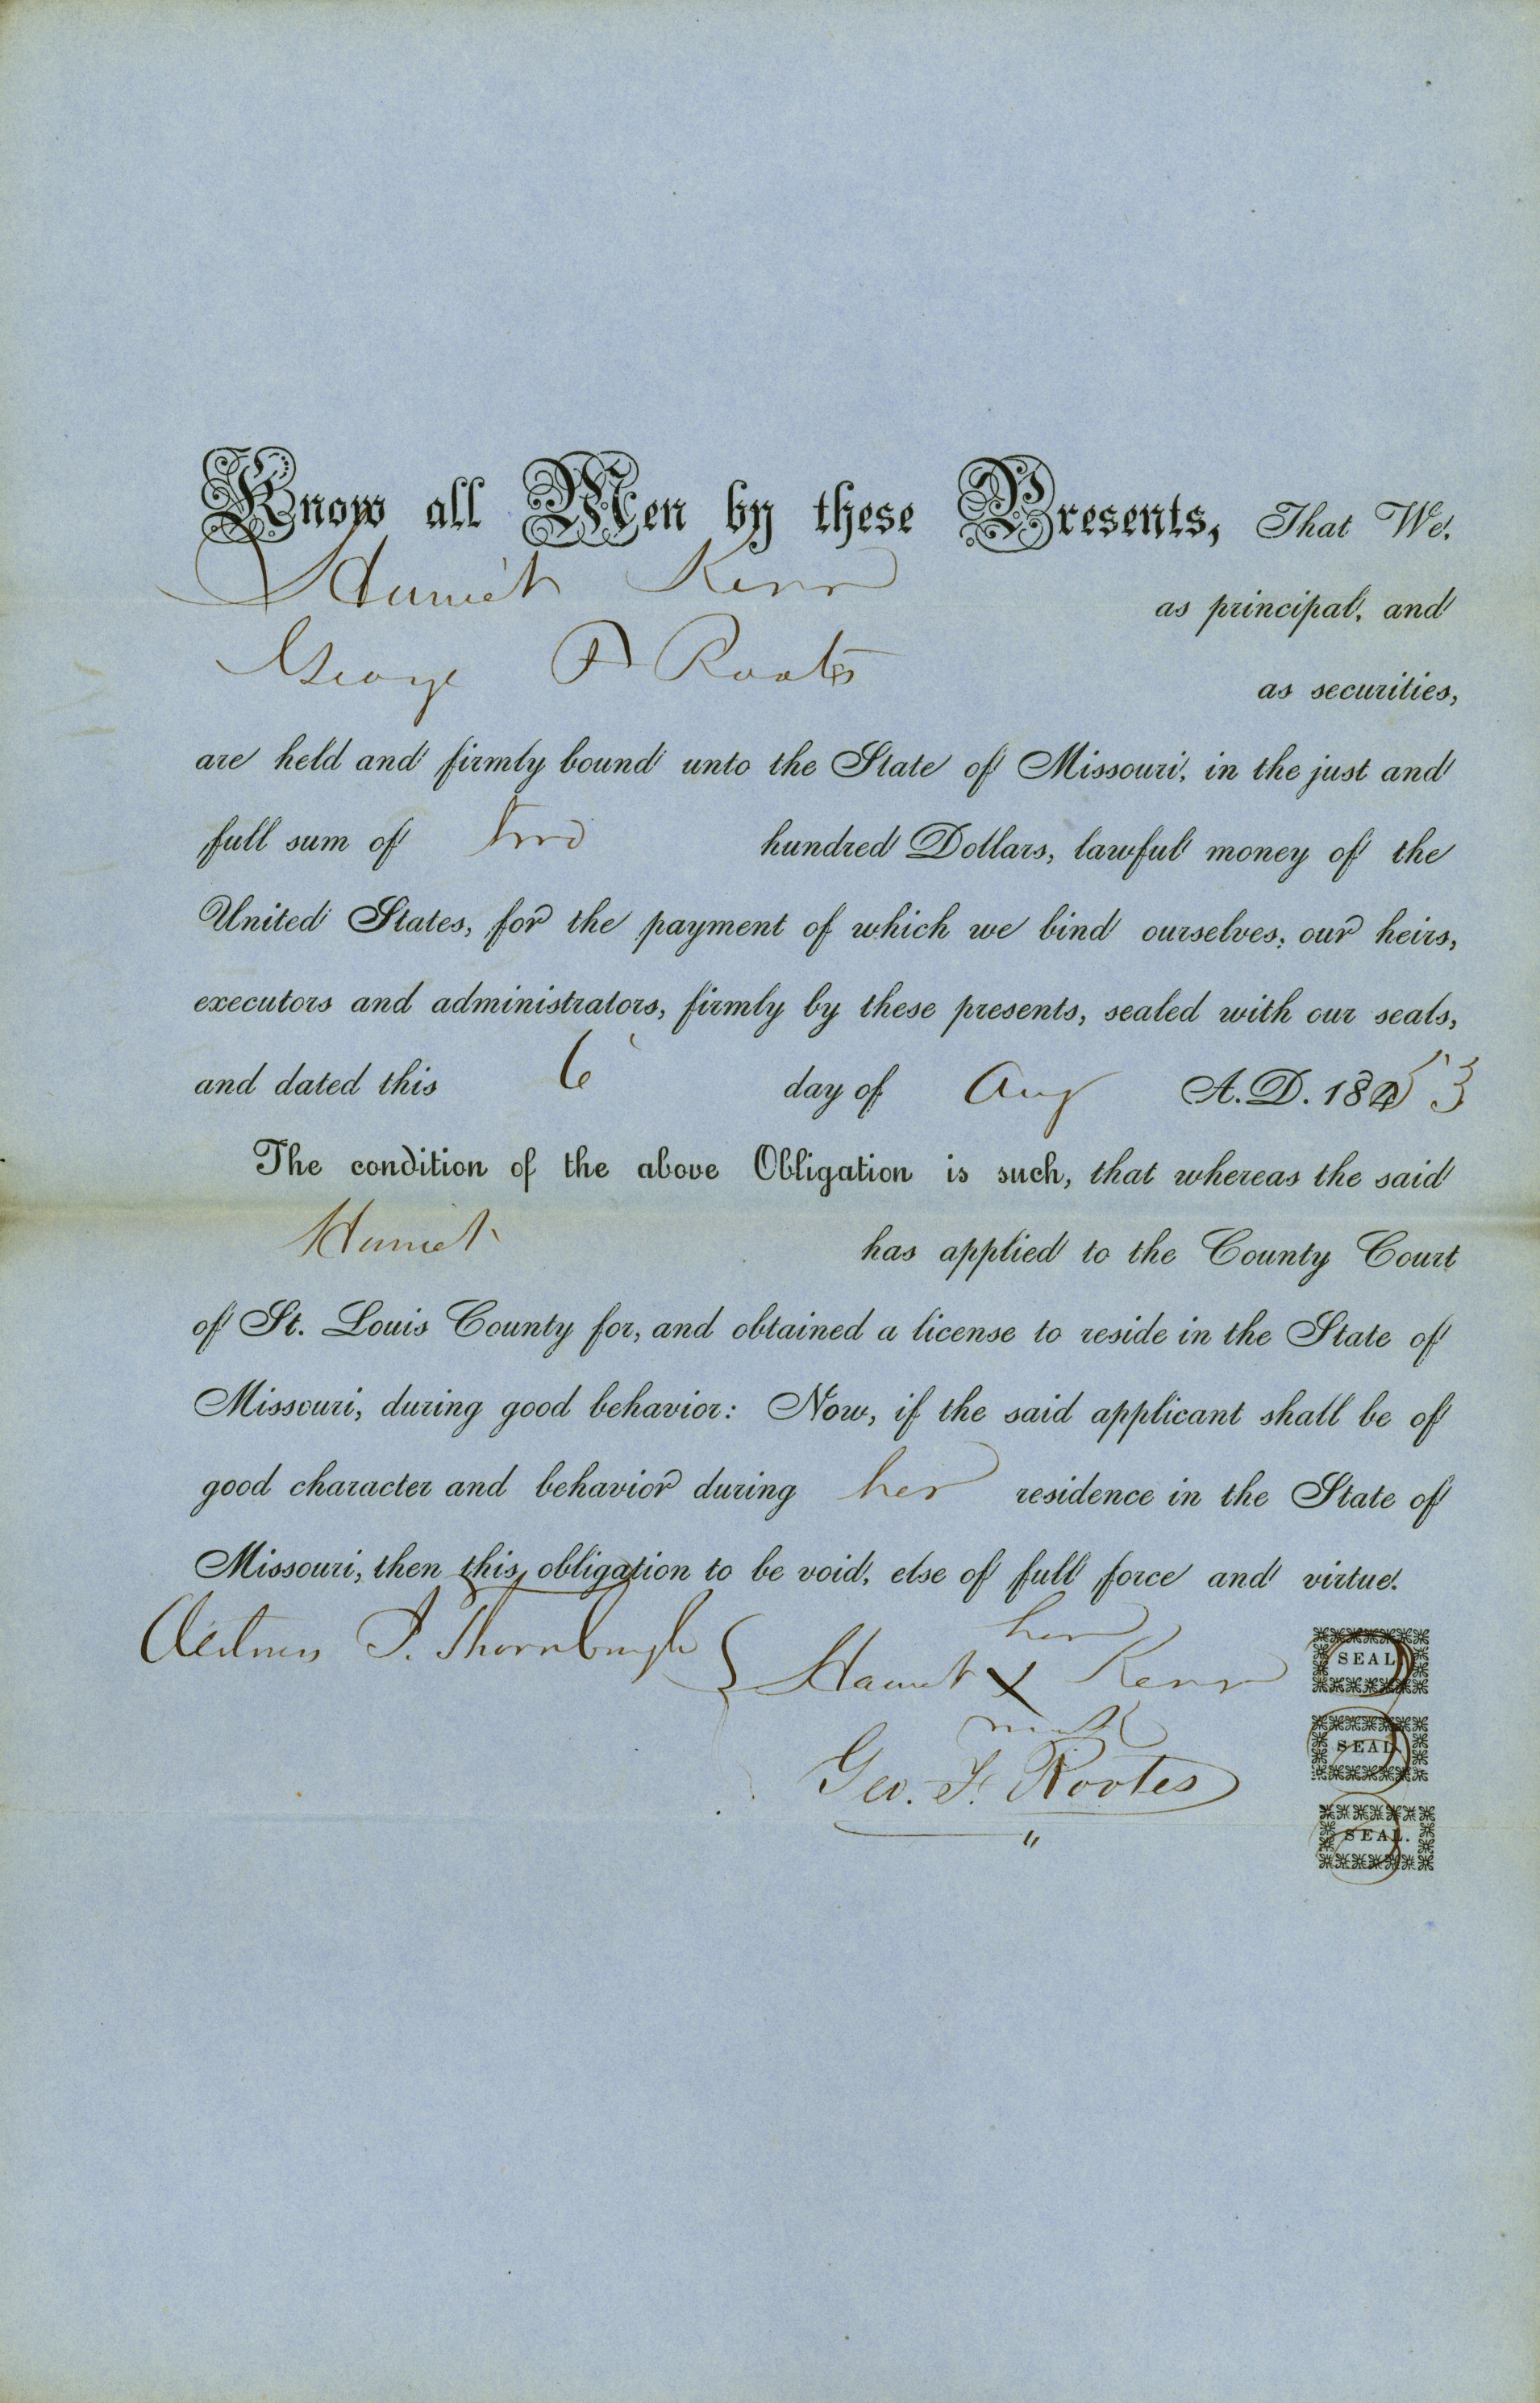 Know all Men by these Presents, That We,
Harriet Kerr as principal, and
George F Rootes as securities,
are held and firmly bound unto the State of Missouri, in the just and
full sum of two hundred Dollars, lawful money of the
United States, for the payment of which we bind ourselves, our heirs,
executors and administrators, firmly by these presents, sealed with our seals,
and dated this 6 day of Aug A. D. 18453
The condition of the above Obligation is such, that whereas the said
Harriet has applied to the County Court
of St. Louis County for, and obtained a license to reside in the State of
Missouri, during good behavior: Now, if the said applicant shall be of
good character and behavior during her residence in the State of
Missouri, then this obligation to be void, else of full force and virtue.
her
Witness J. Thornburgh Harriet X Kerr SEAL.
mark
SEAL
Geo. F. Rootes
SEAL.